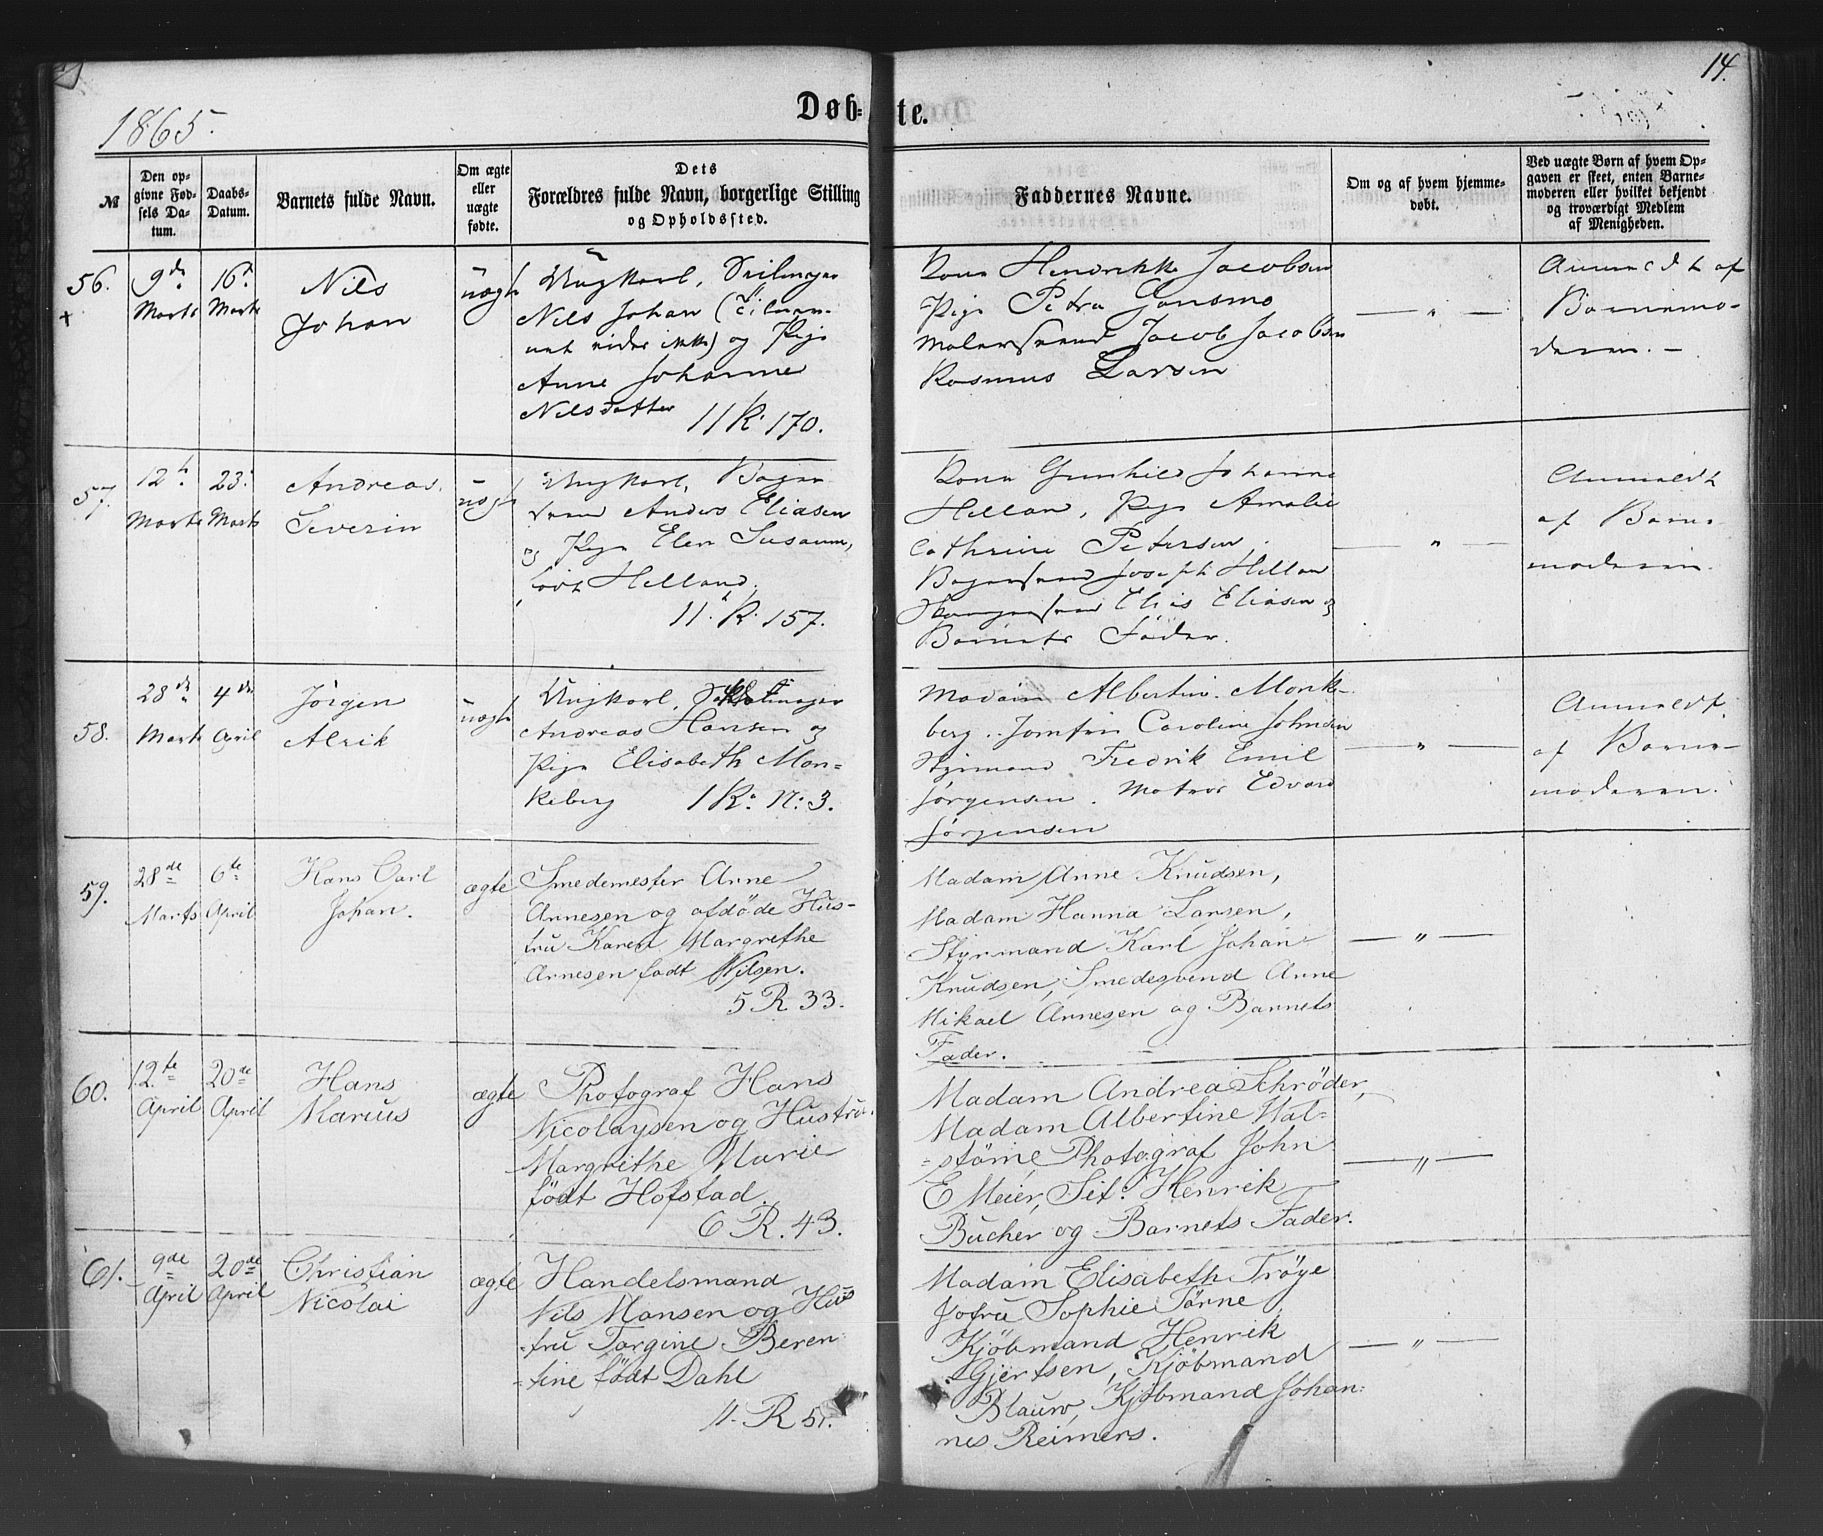 14.
1865.
Døb-te.
№
Den op-
givne Fød-
sels Da-
tum.
Daabs-
Datum.
Barnets fulde Navn.
Om ægte
eller
uægte
fødte.
Dets
Forældres fulde Navn, borgerlige Stilling
og Opholdssted.
Faddernes Navne.
Om og af hvem hjemme-
døbt.
Ved uægte Børn af hvem Op-
gaven er skeet, enten Barne-
moderen eller hvilket bekjendt
og troværdigt Medlem
af Menigheden.
56.
9de
Marts
16d
Marts
Nils
Johan
uægte
Ungkarl, Seilmager
Nils Johan (Tilnav-
net vides ikke) og Pige
Anne Johanne
Nilsdatter
11 R. 170.
Kone Hendrikke Jacobsen
Pige Petra Gonsmo
Malersvend Jacob Jacobsen
Rasmus Larsen
— " —
Anmeldt af
Barnemo-
deren. -
57.
12t
Marts
23.
Marts
Andreas
Severin
uægte
Ungkarl, Bager
svend Anders Eliasen
og Pige Elen Susanne,
født Helland,
11. R. 157.
Kone Gunhild Johanne
Hellan, Pige Amalie
Cathrine Petersen.
Bagersvend Joseph Hellan
Elias Eliasen og
Barnets Fader.
— " —
Anmeldt
af Barne-
moderen.
58.
28de
Marts
4de
April
Jørgen
Alrik
uægte
Ungkarl,
Andreas Hansen og
Pige Elisabeth Mon-
keberg 1 R. N: 3.
Madam Albertin. Monke-
berg.. Jomfru Caroline Johnsen
Styrmand Fredrik Emil
Jørgensen. Matros Edvard
Jørgensen
— " —
Anmeldt
af Barne-
moderen.
59.
28de
Marts
6te
April
Hans Carl
Johan.
ægte
Smedemester Arne
Arnesen og afdøde Hus-
tru Karen Margrethe
Arnesen født Nilsen.
5 R 33.
Madam Anne Knudsen,
Madam Hanna Larsen,
Styrmand Karl Johan
Knudsen, Smedesvend Arne
Mikael Arnesen og Barnets
Fader.
— " —
60.
12te
April
20de
April
Hans
Marius
ægte
Photograf Hans
Nicolaysen og Hustru
Margrethe Marie
født Hofstad.
6 R. 43.
Madam Andrea Schrøder,
Madam Albertine Wal-
-støme Photograf John
E Meier, Sit. Henrik
Bucher og Barnets Fader.
— " —
61.
9de
April
20de
April
Christian
Nicolai
ægte
Handelsmand
Nils Monsen og Hus
-tru Torgine Beren
-tine født Dahl
11. R 51.
Madam Elisabeth Trøye
Jofru Sophie Tørne
Kjøbmand Henrik
Gjertsen, Kjøbmand
Blauw, Kjøbmand Johan-
nes Reimers.
— " —